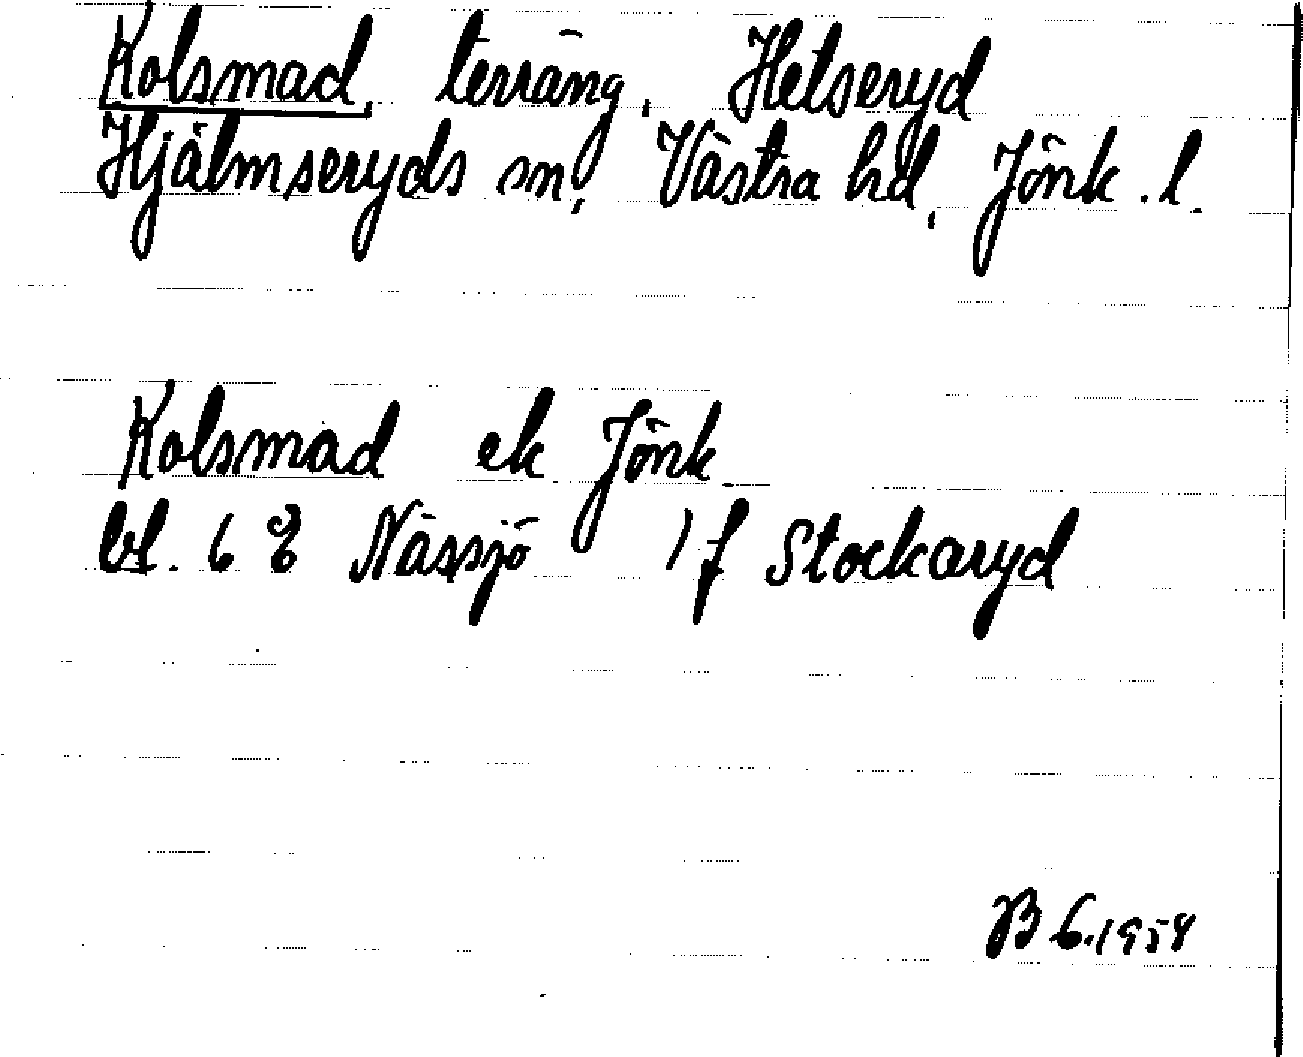 Kolsmad, terräng, Hetseryd
Hjälmseryds sn, Västra hd, Jönk. l.
Kolsmad ek Jönk
bl. 6 Nässjö 1 f Stockaryd
B 6.1954